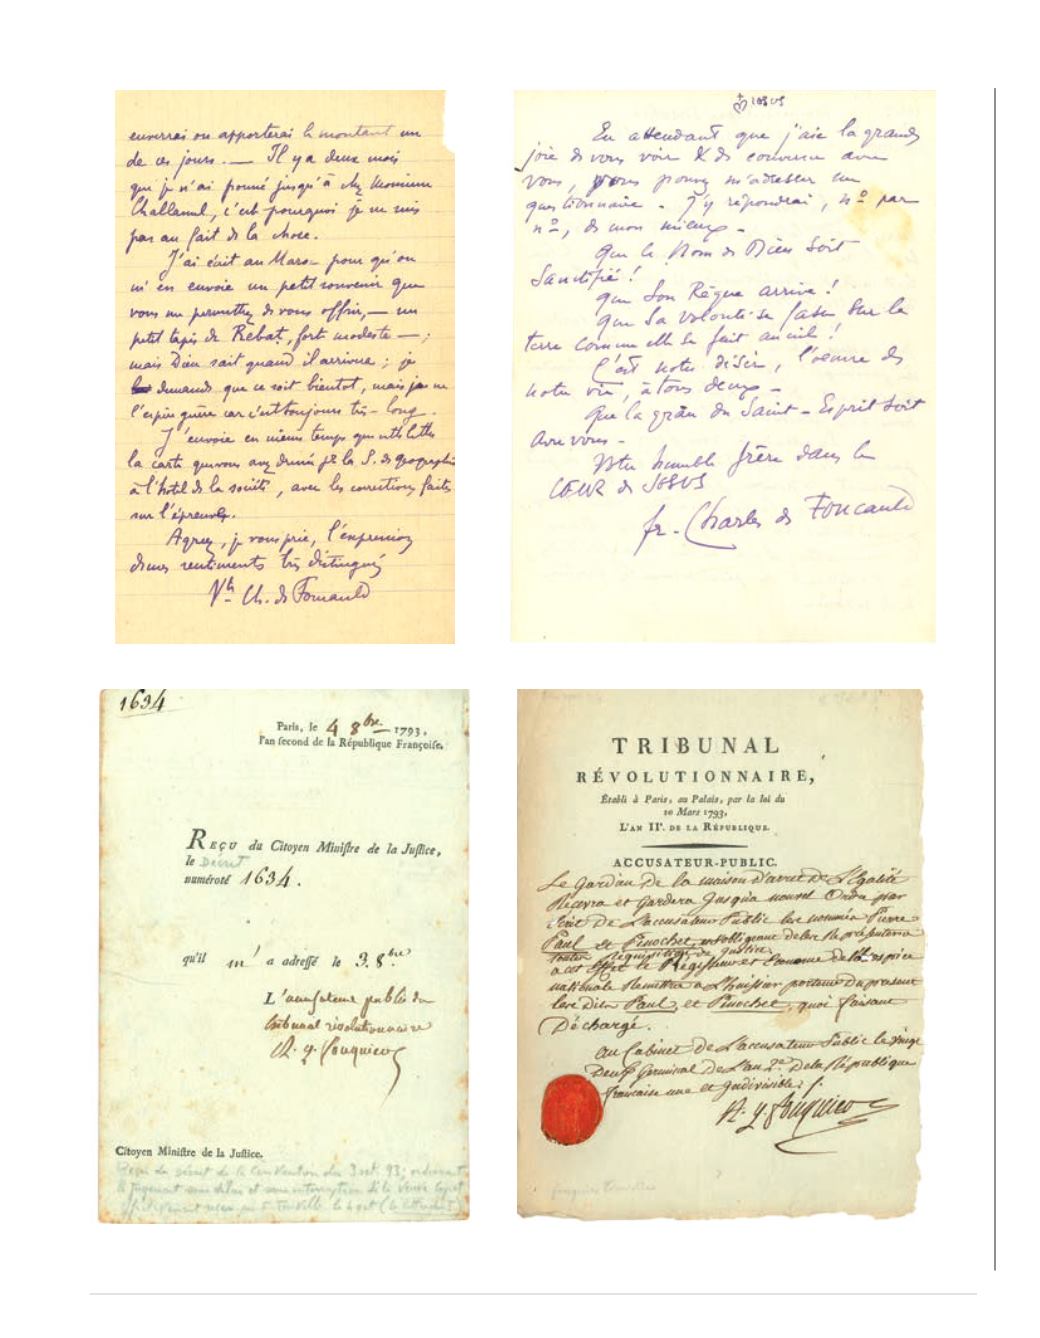 enverrai ou apporterai le montant un
de ces jours. — Il y a deux mois
que je n'ai poussé jusqu'à chez Monsieur
Challamel, c'est pourquoi je ne suis
pas au fait de la chose.
J'ai écrit au Maroc pour qu'on
m'en envoie un petit souvenir que
vous me permettrez de vous offrir, — un
petit tapis de Rebat, fort modeste — ;
mais Dieu sait quand il arrivera ; je
demande que ce soit bientôt, mais je ne
l'espère guère car c'est toujours très-long.
J'envoie en même temps que cette lettre
la carte que vous avez dressée pr la S. de géographie
à l'hôtel de la société, avec les corrections faites
sur l'épreuve.
Agréez, je vous prie, l'expression
de mes sentiments très distingués
Vte Ch. de Foucauld
JESUS
En attendant que j'aie la grande
joie de vous voir & de converser avec
vous, vous pouvez m'adresser un
questionnaire - J'y répondrai, no par
no, de mon mieux -
Que le Nom de Dieu soit
Sanctifié !
Que Son Règne arrive !
Que Sa volonté se fasse sur la
terre comme elle se fait au ciel !
C'est notre désir, l'oeuvre de
notre vie, à tous deux -
Que la grâce du Saint-Esprit soit
avec vous -
Votre humble frère dans le
COEUR de JESUS
fr. Charles de Foucauld
1634
Paris, le 4 8bre 1793,
l'an second de la République Françoise.
REÇU du Citoyen Ministre de la Justice,
le Décret
numéroté 1634.
qu'il m' a adressé le 3. 8bre
L'accusateur public du
tribunal révolutionnaire
A. q. fouquier
Citoyen Ministre de la Justice.
Reçu du décret de la Convention du 3 oct. 93, ordonnant
le jugement sans délai et sans interruption de la veuve Capet
TRIBUNAL
RÉVOLUTIONNAIRE,
Établi à Paris, au Palais, par la loi du
10 Mars 1793,
L'AN IIe. DE LA RÉPUBLIQUE.
ACCUSATEUR-PUBLIC.
Le Gardien de la maison d'arret de L'Egalité
Recevra et gardera Jusqu'a nouvel Ordre par
Ecrit De L'accusateur Public les nommés Pierre
Paul et Pinochet, en obligeant de les Representer a
toutes Requisitions de justice
a cet Effet le Régisseur et Econome de l'hospice
nationale Remettra a L'huissier porteur Du present
les Dits Paul et Pinochet, quoi faisant
Déchargé.
au Cabinet De L'accusateur Public le vingt
Deux Germinal De L'an 2e. De la République
francaise une et Indivisible ;.
A. q. fouquier
fouquier tinville